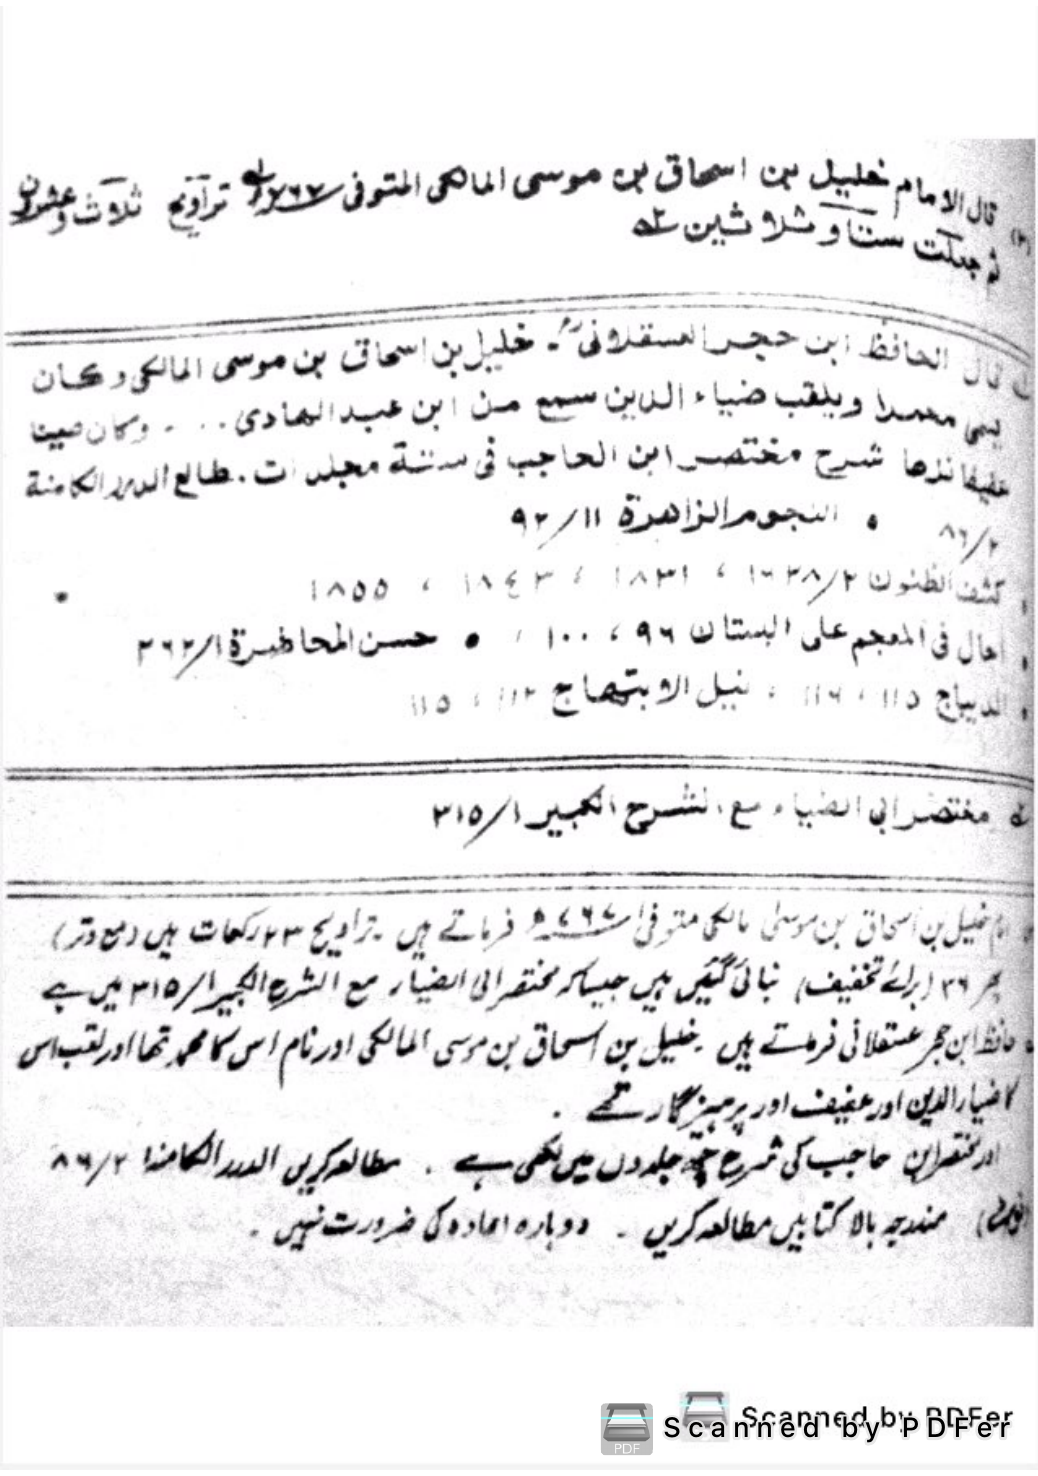 (٢) قال الامام خليل بن اسحاق بن موسى المالكى المتوفى ٧٦٧ھ تراويح ثلاث وعشرون
ثم جعلت ستا و ثلاثين
قال الحافظ ابن حجر العسقلانى ؒ۔ خليل بن اسحاق بن موسى المالكى وكان
يسمى محمدا ويلقب ضياء الدين سمع من ابن عبد الهادى . . . وكان صينا
عفيفا نزها شرح مختصر ابن الحاجب فى ستة مجلدات . طالع الدرر الكامنة
٨٦/٢ • النجوم الزاهرة ٩٢/١١
• كشف الظنون ١٦٢٨/٢ ، ١٨٣١ ، ١٨٤٣ ، ١٨٥٥
• احال فى المعجم على البستان ٩٦ ، ١٠٠ ، • حسن المحاضرة ٢٦٢/١
• الديباج ١١٥ ، ١١٦ ، نيل الابتهاج ١١٢ ، ١١٥
مختصر ابى الضياء مع الشرح الكبير ٣١٥/١
امام خلیل بن اسحاق بن موسیٰ مالکی متوفی ٧٦٧ھ فرماتے ہیں ۔ تراویح ٢٣ رکعات ہیں (مع وتر)
پھر ٣٦ (برائے تخفیف) بنائی گئیں ہیں جیسا کہ مختصر ابی الضیاء مع الشرح الکبیر ٣١٥/١ میں ہے
حافظ ابن حجر عسقلانی فرماتے ہیں ۔ خلیل بن اسحاق بن موسی المالکی اور نام اس کا محمد تھا اور لقب اس
کا ضیاء الدین اور عفیف اور پرہیزگار تھے ۔
اور مختصر ابن حاجب کی شرح چھ جلدوں میں لکھی ہے ۔ مطالعہ کریں الدرر الکامنہ ٨٦/٢
مندرجہ بالا کتابیں مطالعہ کریں ۔ دوبارہ اعادہ کی ضرورت نہیں ۔
Scanned by PDFer
Scanned by PDFer
PDF